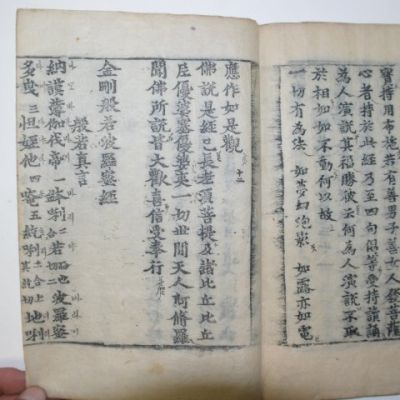 寶持用布施若有善男子善女人發菩薩
心者持於此經乃至四句偈等受持讀誦
為人演說其福勝彼云何為人演說不取
於相如如不動何以故
一切有為法 如夢幻泡影 如露亦如電
應作如是觀
佛說是經已長老須菩提及諸比丘比丘
尼優婆塞優婆夷一切世間天人阿修羅
聞佛所說皆大歡喜信受奉行
金剛般若波羅蜜經
般若真言
納謨婆伽伐帝一 鉢唎二若 波羅蜜
多曳三 怛姪他四 唵五 地唎